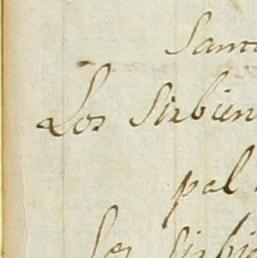 Sant
Los Sirbien
pal
Los Sirbi